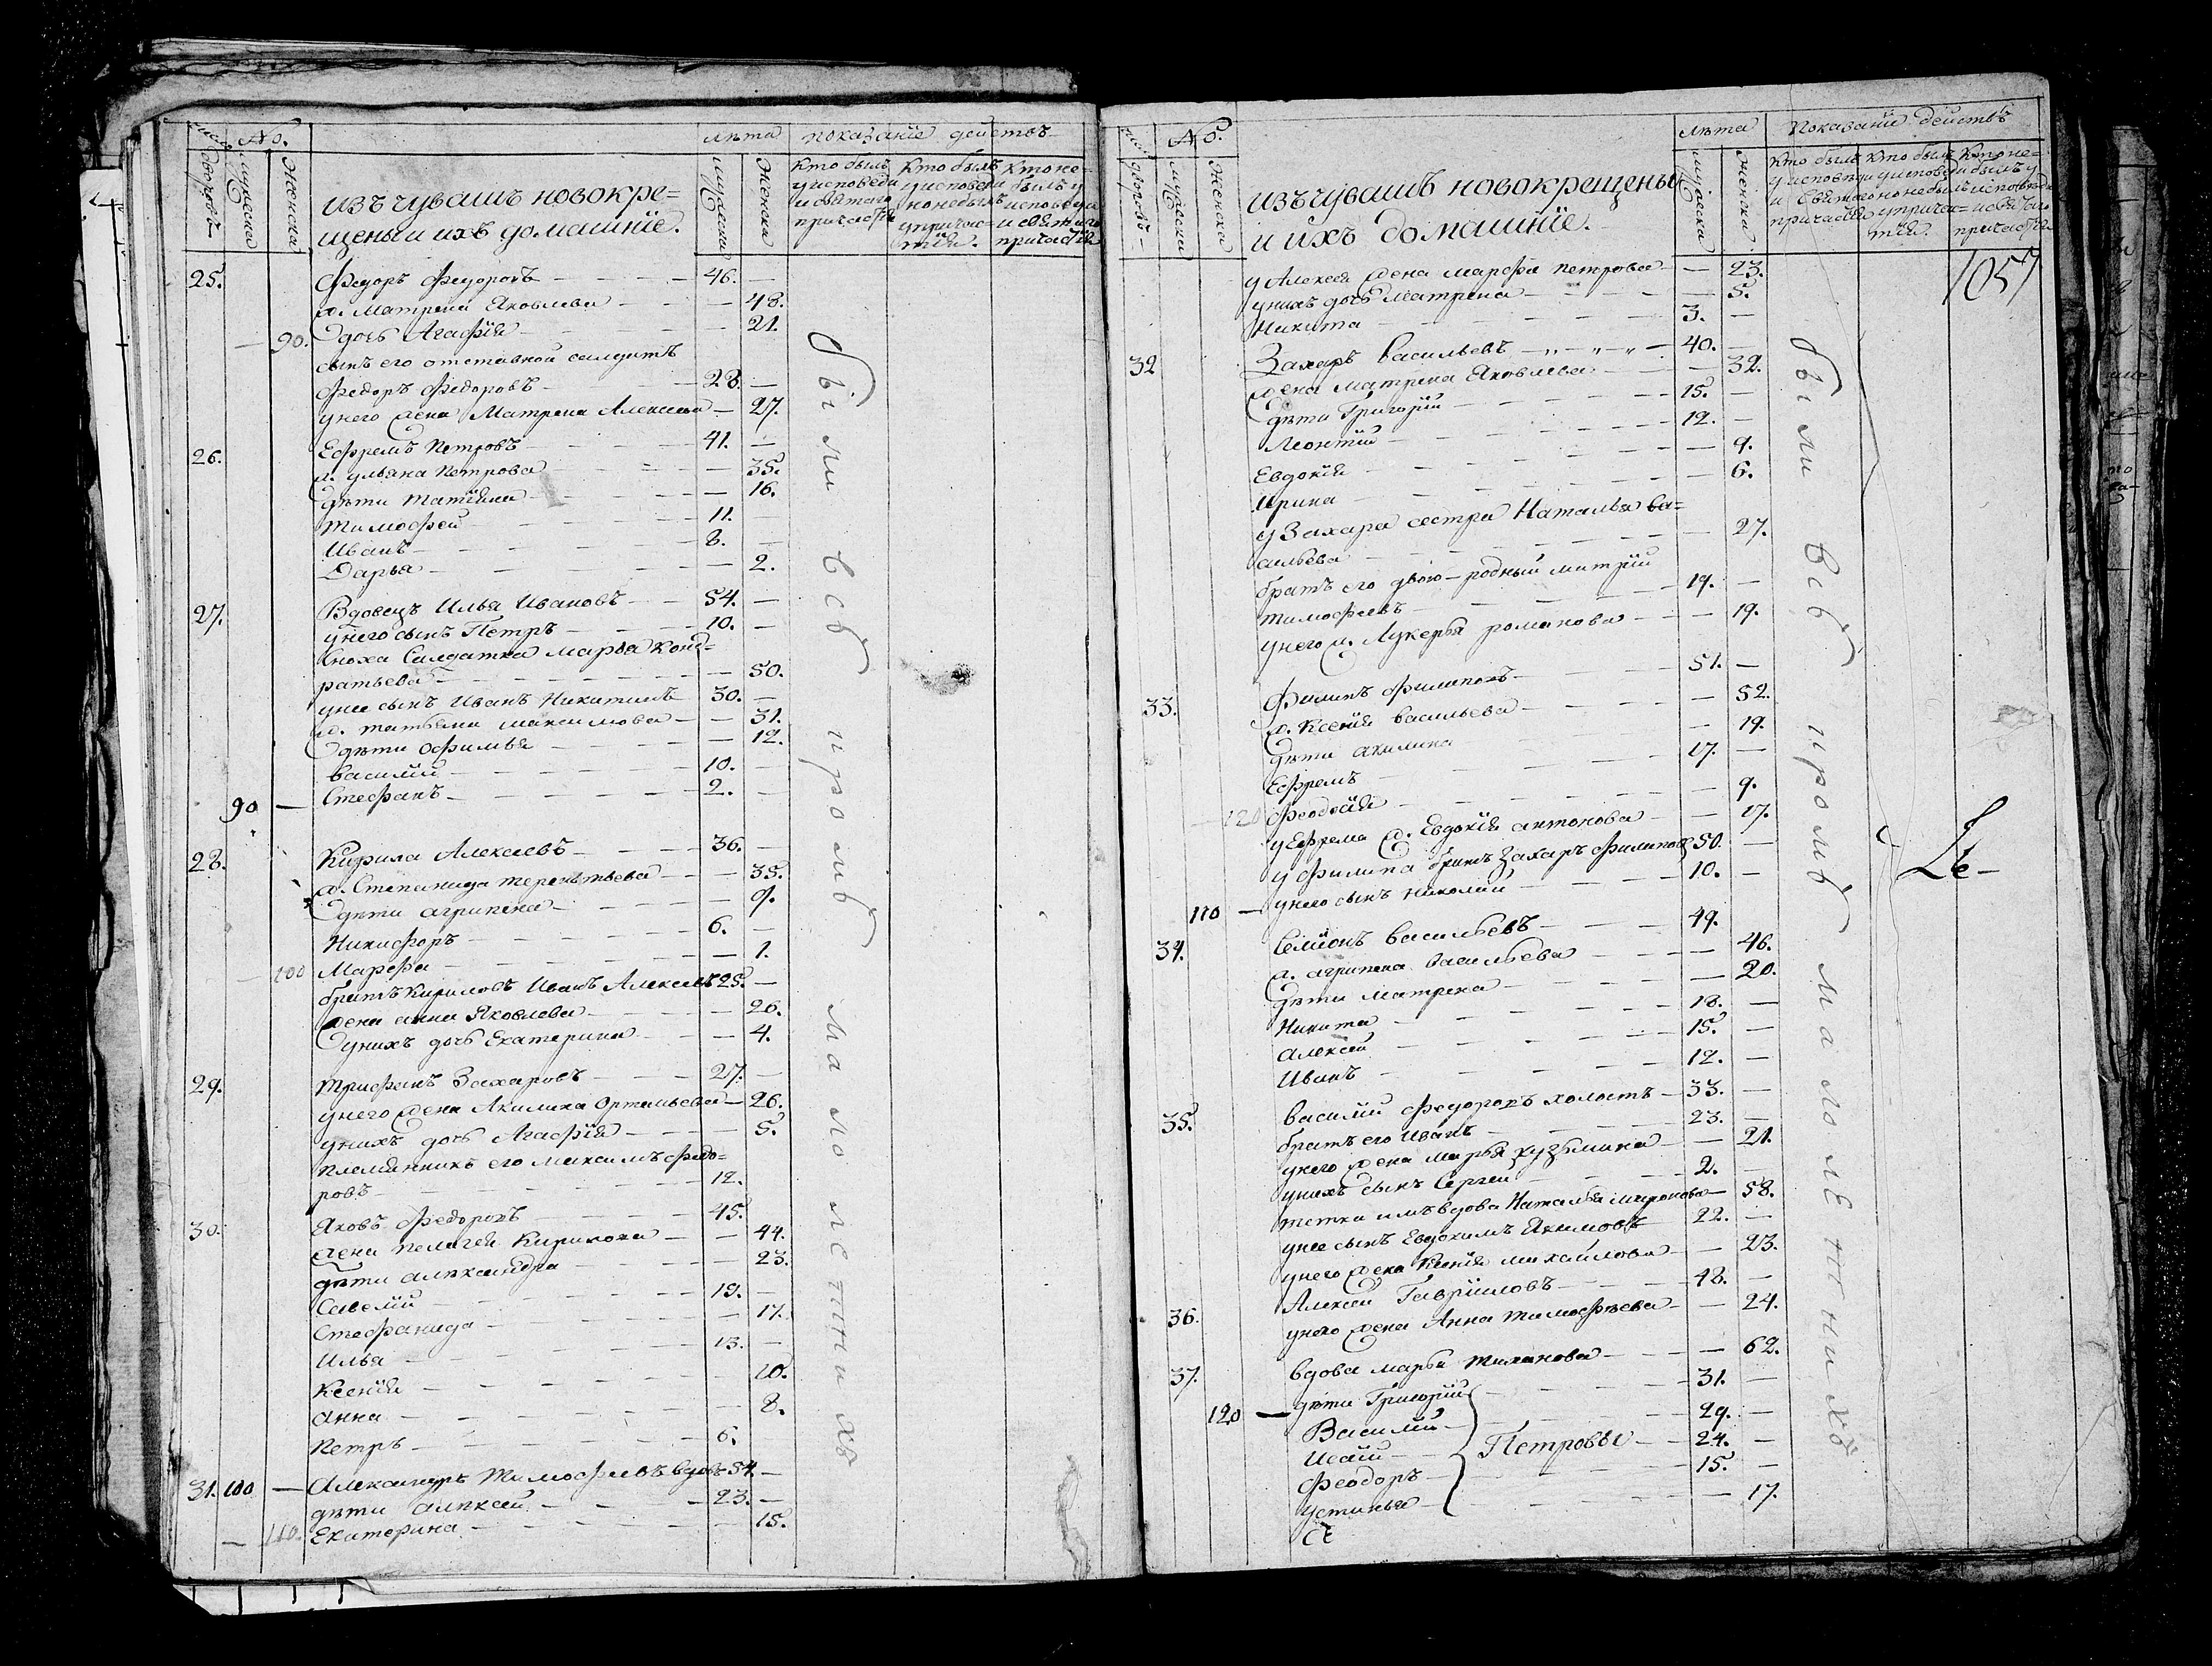 No. лѣта показанїе действъ
число дворовъ мужеска женска
изъ чувашъ новокре=
щены и ихъ домашнїе.
мужеска женска
кто былъ у исповеди и святаго причастїя
кто былъ у исповеди но небылъ у причас=тїя.
кто не=былъ у исповеди и святаго причастїя
25. Федоръ Федоровъ 46. —
ж. Матрена Яковлева — 48.
— 90. дочь Агафїя — 21.
сынъ его отставной салдатъ
Федоръ Федоровъ 28. —
унего жена Матрена Алексеева — 27.
26. Ефремъ Петровъ 41. —
ж. ульяна Петрова — 35.
дѣти татїяна — 16.
тимофей 11.
Иванъ 8. —
Дарья — 2.
27. Вдовецъ Илья Ивановъ 54. —
унего сынъ Петръ 10. —
Сноха Салдатка марья Конд=
ратьева — 50.
унее сынъ Иванъ Никитинъ 30. —
ж. татьяна максимова — 31.
дѣти Офимья — 12.
василїй 10. —
90 — Стефанъ 2. —
28. Кирила Алексеевъ 36. —
ж. Степанида терентьева — 35.
дѣти агрипена — 9.
Никифоръ 6. —
— 100 Марфа — 1.
братъ Кириловъ Иванъ Алексеевъ 25. —
жена анна Яковлева — 26.
унихъ дочь Екатерина — 4.
29. трифанъ Захаровъ 27. —
унего жена Акилина Ортемьева — 26.
унихъ дочь Агафїя — 5.
племянникъ его максимъ федо=
ровъ 12.
30. Яковъ Федоровъ 45.
жена пелагея Кирилова — 44.
дѣти александра — 23.
Савелїй 19. —
Стефанида — 17.
Илья 13. —
Ксенїя — 10.
анна — 8.
петръ 6.
31. 100 — Александръ тимофеевъ вдовъ 54. —
дѣти алексей 23. —
— 110. Екатерина — 15.
были всѣ кромѣ малолетныхъ
No. лѣта показанїи действъ
число дворовъ мужеска женска
изъ чувашъ новокрещены
и ихъ домашнїе.
мужеска женска
кто былъ у исповѣди и святаго причастїя
кто былъ у исповѣди но небылъ у причас=тїя.
кто не=былъ у исповѣди и святаго причастїя
1057
у Алексея жена марфа петрова — 23.
унихъ дочь Матрена — 5.
Никита 3. —
32 Захаръ Васильевъ 40. —
жена матрена Яковлева — 32.
дѣти Григорїй 15. —
Леонтїй 12. —
Евдокїя — 9.
Ирина — 6.
у Захара сестра Наталья ва=
сильева — 27.
братъ его двою-родный митрїй
тимофеевъ 19. —
унего ж. Лукерья романова — 19.
33. Филипъ Филиповъ 51. —
ж. Ксенїя васильева — 52.
дѣти акилина — 19.
Ефремъ 17. —
— 120 Феодосїя — 9.
у Ефрема ж. Евдокїя антонова — 17.
у Филипа братъ Захаръ Филиповъ 50. —
110 — унего сынъ николай 10. —
34. Семионъ васильевъ 49.
ж. агрипена васильева — 46.
дѣти матрена — 20.
Никита 18. —
алексей 15. —
Иванъ 12. —
35. василїй федоровъ холостъ 33. —
братъ его Иванъ 23. —
унего жена марья кузьмина — 21.
унихъ сынъ Сергей 2. —
тетка имъ вдова Наталья миронова — 58.
унее сынъ Евдокимъ Якимовъ 22. —
унего жена Ксенїя михайлова — 23.
36. Алексей Гаврииловъ 48. —
унего жена Анна тимофѣева — 24.
37. вдова марья тихонова — 62.
120 — дѣти Григорїй 31. —
Василїй 29. —
Исаїй Петровы 24. —
Феодоръ 15. —
устинья — 17.
были всѣ кромѣ малолетныхъ